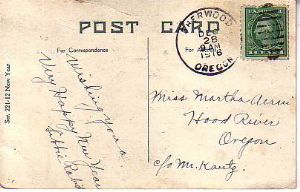 POST CARD
For Correspondence
SHERWOOD
DEC
28
9 AM
1916
OREGON
Ser. 221-12 New Year
Wishing you a
Very Happy New Year
Miss Martha
Hood River
Oregon
c/o Mr. Kautz